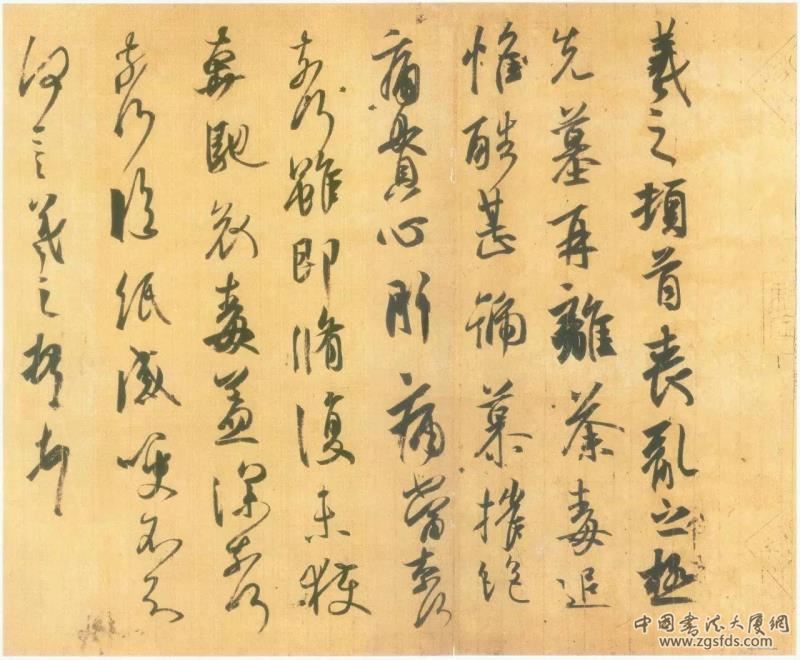 羲之頓首喪亂之極
先墓再離荼毒追
惟酷甚號慕摧絕
痛貫心肝痛當奈何
奈何雖即脩復未獲
奔馳哀毒益深奈何
奈何臨紙感哽不知
何言羲之頓首頓首
中國書法大厦網
www.zgsfds.com